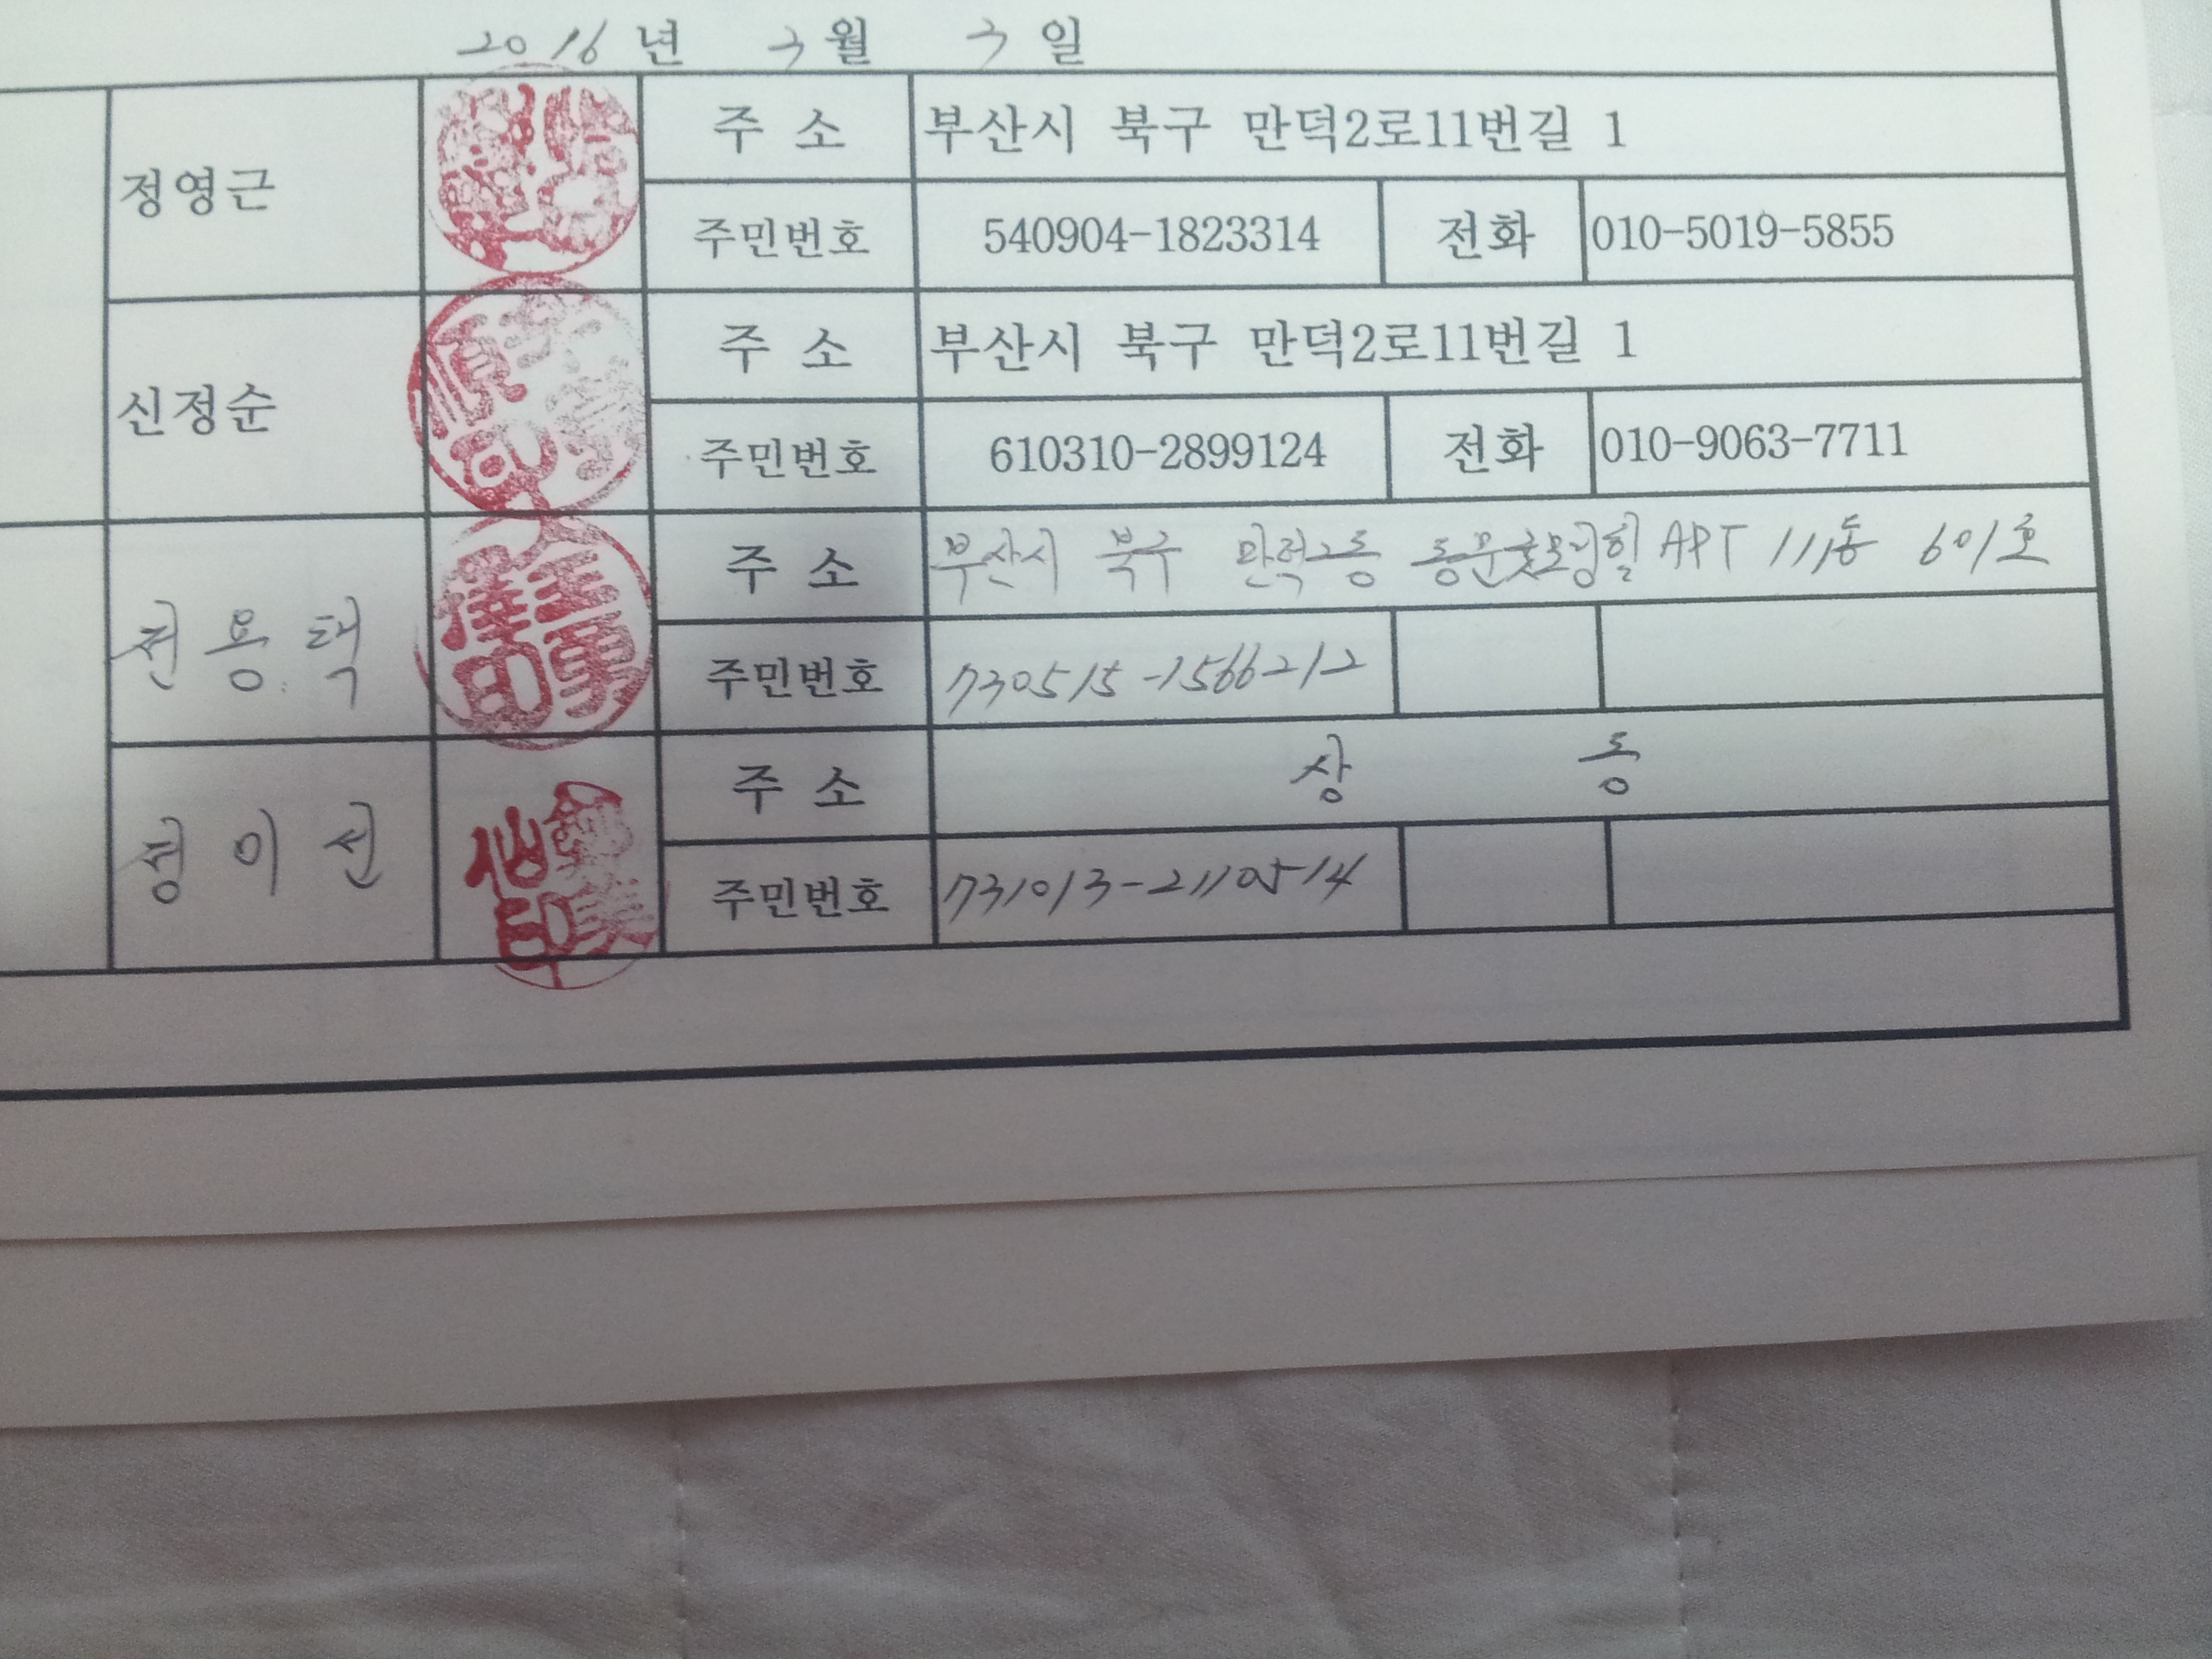 2016 년 3 월 3 일
정영근 주 소 부산시 북구 만덕2로11번길 1
주민번호 540904-1823314 전화 010-5019-5855
신정순 주 소 부산시 북구 만덕2로11번길 1
주민번호 610310-2899124 전화 010-9063-7711
전용택 주 소 부산시 북구 만덕2동 동문굿모닝힐 APT 111동 601호
주민번호 730515-1566212
정이선 주 소 상 동
주민번호 731013-2110514